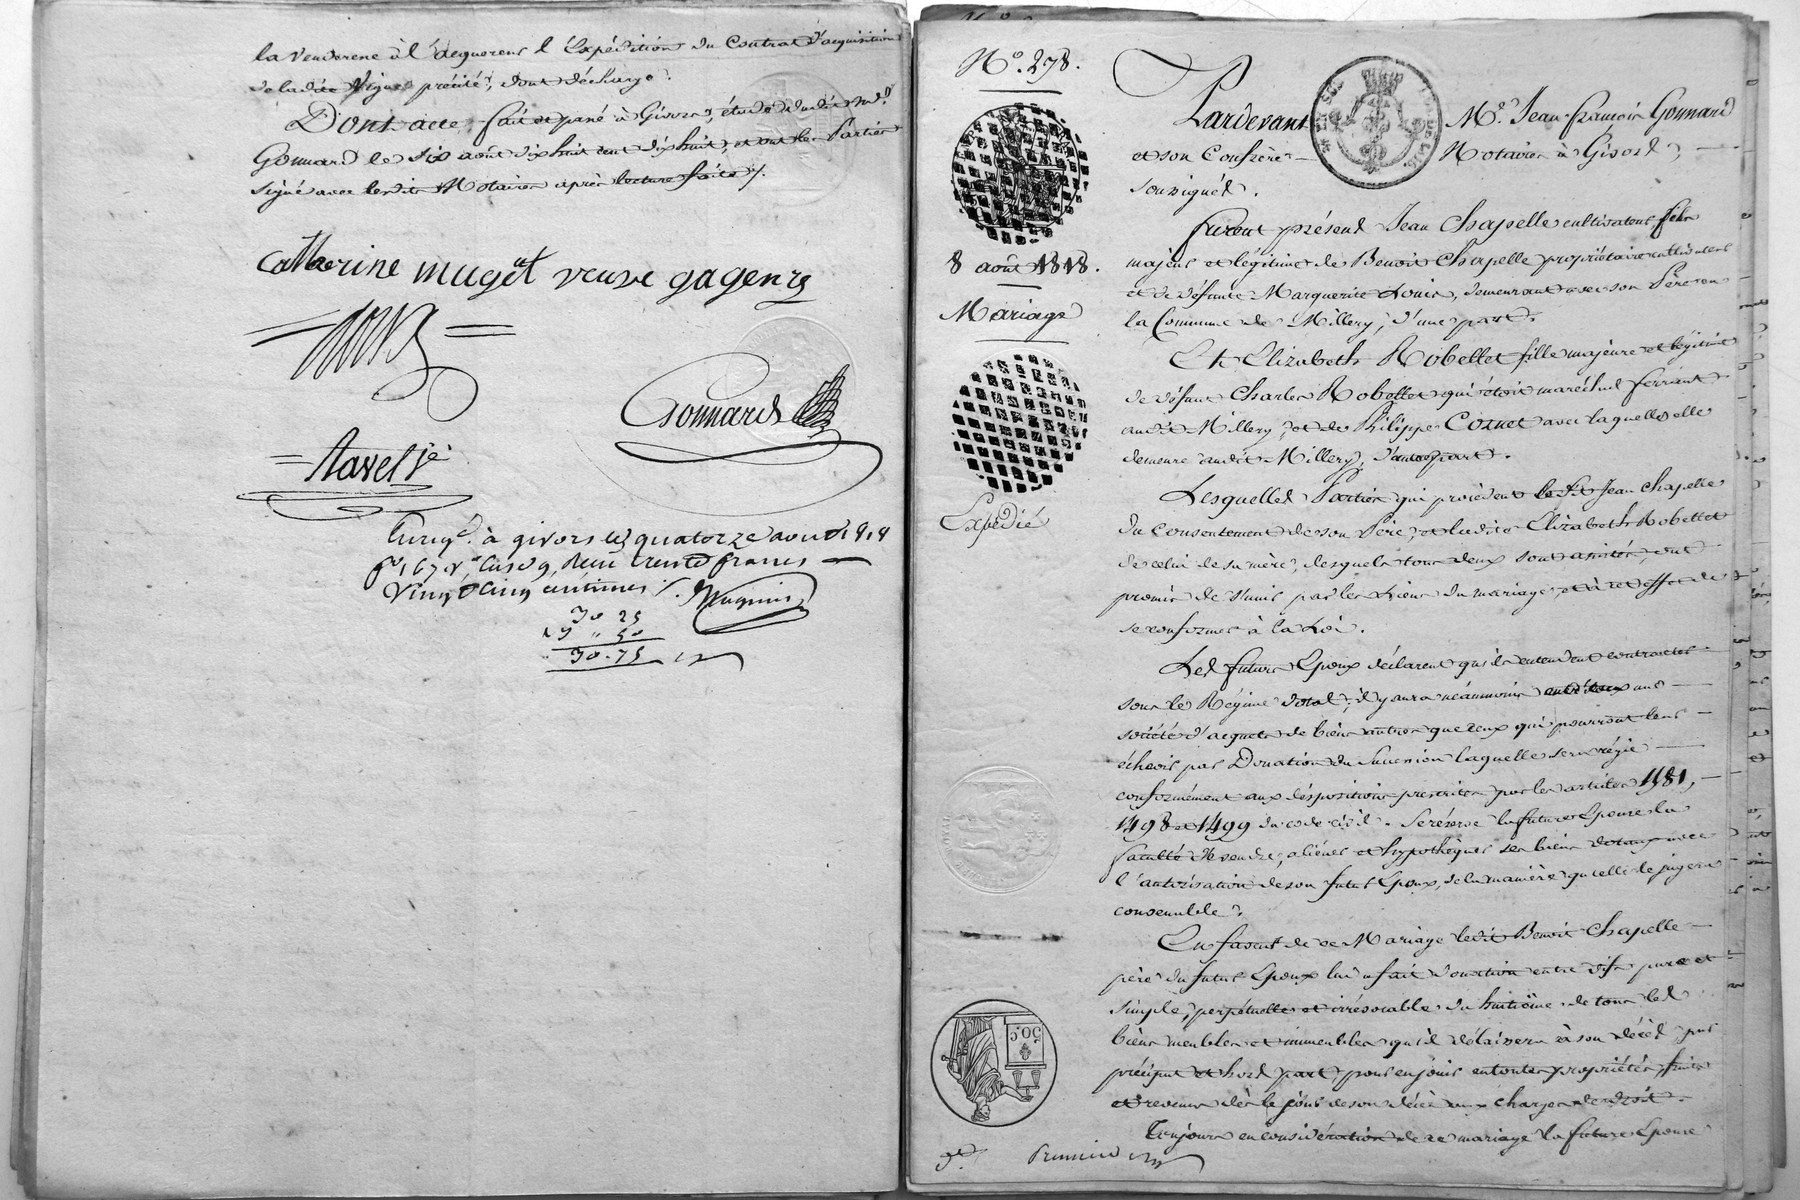 la Venderesse à l'acquereur l'Expédition du Contrat d'acquisition
de ladite Vigne précité, dont décharge.
Dont acte, fait et passé à Givors, étude dudit Md.
Gonnard le six août dix huit cent dix huit, et ont les Parties
signé avec lesdits Notaires après lecture faite /.
catherine muguet veuve gagenre
Gonnard
Ravel je
Enregé. à givors le quatorze août 1818
fo. 167 v. Case 9, Reçu trente francs
Vingt Cinq centimes /.
30 25
" 50
30.75
No. 278.
8 août 1818.
Mariage
Expédié
Pardevant Me. Jean françois Gonnard
et son Confrère Notaires à Givors,
soussignés.
furent présens Jean Chapelle cultivateur fils
majeur et légitime de Benoit Chapelle propriétaire cultivateur
et de défunte Marguerite Louis, demeurant avec son Père en
la Commune de Millery, d'une part.
Et Elizabeth Robellet fille majeure et légitime
de défunt Charles Robellet qui étoit maréchal ferrant
audit Millery, et de Philippe Cornet avec laquelle elle
demeure audit Millery, d'autre part.
Lesquelles Parties qui procèdent le Sr. Jean Chapelle
du Consentement de son Père, et ladite Elizabeth Robellet
de celui de sa mère, lesquels tous deux sont assistés, ont
promis de s'unir par les Liens du mariage, et à cet effet de
se conformer à la Loi.
Les futurs Epoux déclarent qu'ils entendent contracter
sous le Régime dotal; il y aura néanmoins entr'eux une
société d'acquets de biens autres que ceux qui pourront leur
échoir par Donation ou Succession laquelle sera régie
conformément aux dispositions prescrites par les articles 1581,
1498 et 1499 du code civil. Se réserve la future Epouse la
faculté de vendre, aliéner et hypothéquer ses biens dotaux avec
l'autorisation de son futur Epoux, de la manière qu'elle le jugera
convenable.
En faveur de ce Mariage ledit Benoit Chapelle
père du futur Epoux lui a fait donation entre vifs pure et
simple, perpétuelle et irrévocable du huitième de tous les
biens meubles et immeubles qu'il délaissera à son décès, par
préciput et hors part, pour en jouir en toutes propriétés, fruits
et revenus dès le jour de son décès aux charges de droit.
50 c.
Toujours en considération de ce mariage la future Epouse